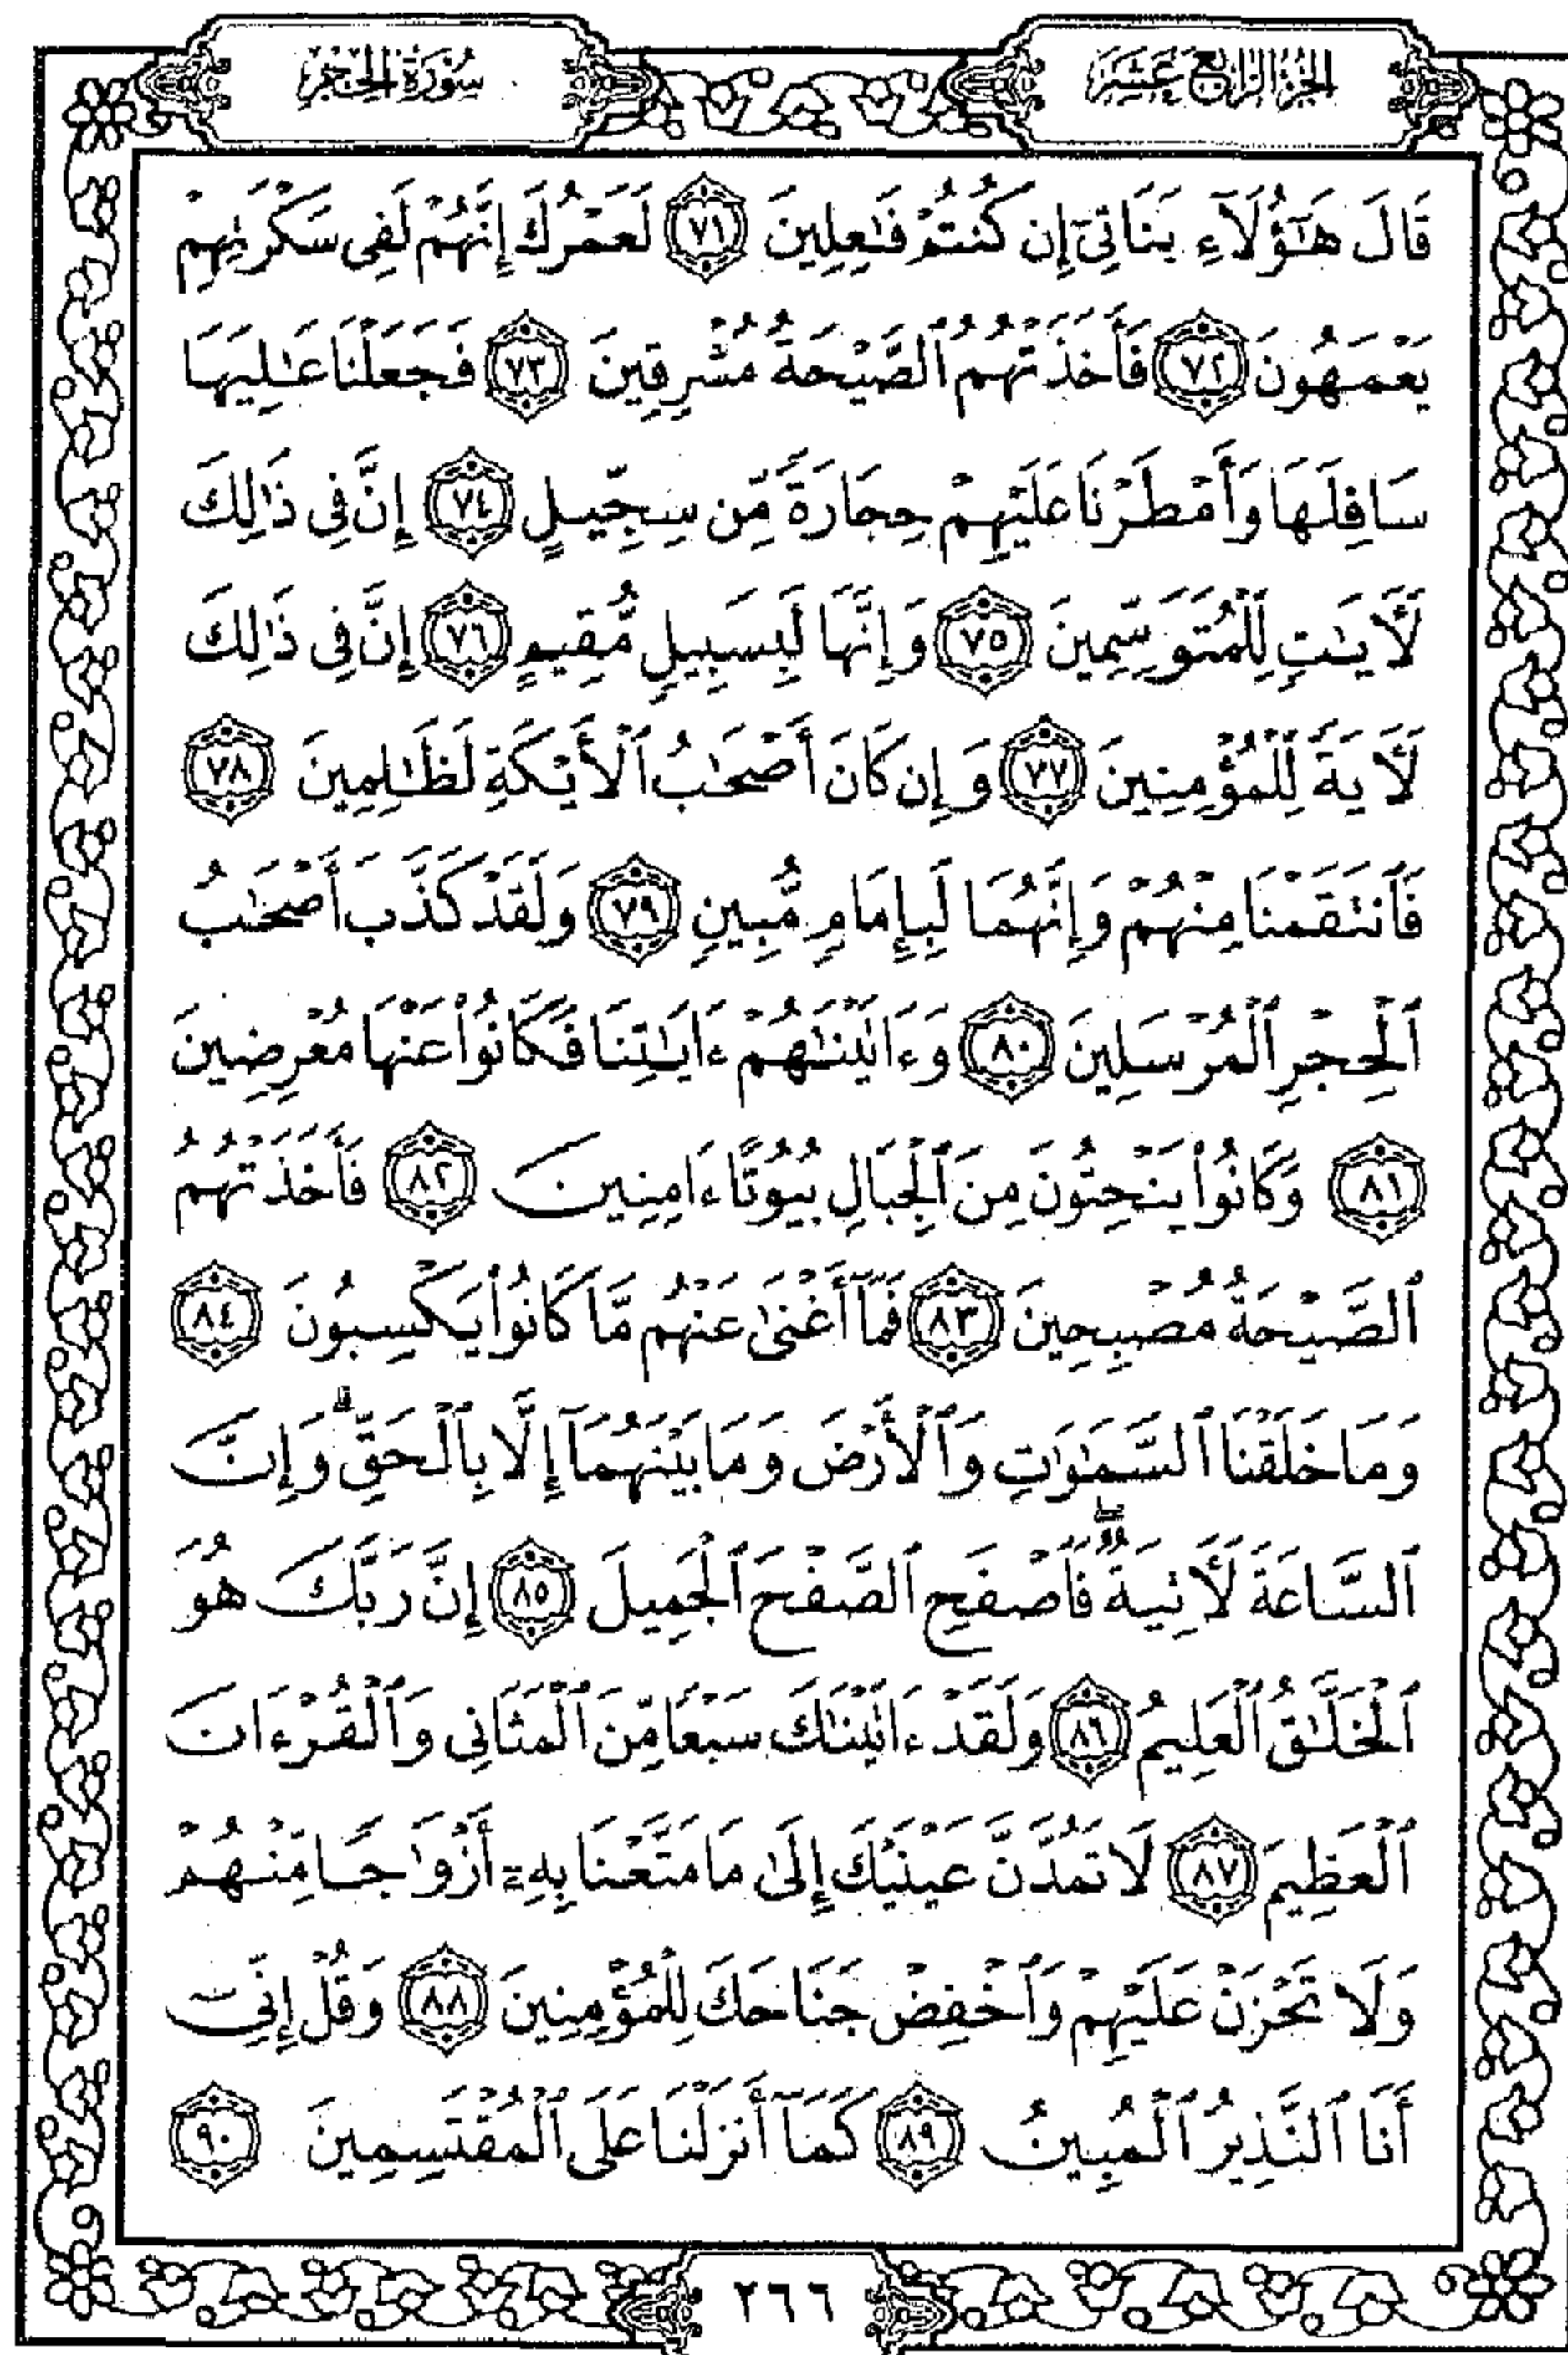 الجزء الرابع عشر
سورة الحجر
قَالَ هَٰٓؤُلَآءِ بَنَاتِىٓ إِن كُنتُمْ فَٰعِلِينَ ٧١ لَعَمْرُكَ إِنَّهُمْ لَفِى سَكْرَتِهِمْ
يَعْمَهُونَ ٧٢ فَأَخَذَتْهُمُ ٱلصَّيْحَةُ مُشْرِقِينَ ٧٣ فَجَعَلْنَا عَٰلِيَهَا
سَافِلَهَا وَأَمْطَرْنَا عَلَيْهِمْ حِجَارَةً مِّن سِجِّيلٍ ٧٤ إِنَّ فِى ذَٰلِكَ
لَأَيَٰتٍ لِّلْمُتَوَسِّمِينَ ٧٥ وَإِنَّهَا لَبِسَبِيلٍ مُّقِيمٍ ٧٦ إِنَّ فِى ذَٰلِكَ
لَأَيَةً لِّلْمُؤْمِنِينَ ٧٧ وَإِن كَانَ أَصْحَٰبُ ٱلْأَيْكَةِ لَظَٰلِمِينَ ٧٨
فَٱنتَقَمْنَا مِنْهُمْ وَإِنَّهُمَا لَبِإِمَامٍ مُّبِينٍ ٧٩ وَلَقَدْ كَذَّبَ أَصْحَٰبُ
ٱلْحِجْرِ ٱلْمُرْسَلِينَ ٨٠ وَءَاتَيْنَٰهُمْ ءَايَٰتِنَا فَكَانُوا۟ عَنْهَا مُعْرِضِينَ
٨١ وَكَانُوا۟ يَنْحِتُونَ مِنَ ٱلْجِبَالِ بُيُوتًا ءَامِنِينَ ٨٢ فَأَخَذَتْهُمُ
ٱلصَّيْحَةُ مُصْبِحِينَ ٨٣ فَمَآ أَغْنَىٰ عَنْهُم مَّا كَانُوا۟ يَكْسِبُونَ ٨٤
وَمَا خَلَقْنَا ٱلسَّمَٰوَٰتِ وَٱلْأَرْضَ وَمَا بَيْنَهُمَآ إِلَّا بِٱلْحَقِّ ۗ وَإِنَّ
ٱلسَّاعَةَ لَأَتِيَةٌ ۖ فَٱصْفَحِ ٱلصَّفْحَ ٱلْجَمِيلَ ٨٥ إِنَّ رَبَّكَ هُوَ
ٱلْخَلَّٰقُ ٱلْعَلِيمُ ٨٦ وَلَقَدْ ءَاتَيْنَٰكَ سَبْعًا مِّنَ ٱلْمَثَانِى وَٱلْقُرْءَانَ
ٱلْعَظِيمَ ٨٧ لَا تَمُدَّنَّ عَيْنَيْكَ إِلَىٰ مَا مَتَّعْنَا بِهِۦٓ أَزْوَٰجًا مِّنْهُمْ
وَلَا تَحْزَنْ عَلَيْهِمْ وَٱخْفِضْ جَنَاحَكَ لِلْمُؤْمِنِينَ ٨٨ وَقُلْ إِنِّىٓ
أَنَا ٱلنَّذِيرُ ٱلْمُبِينُ ٨٩ كَمَآ أَنزَلْنَا عَلَى ٱلْمُقْتَسِمِينَ ٩٠
٢٦٦